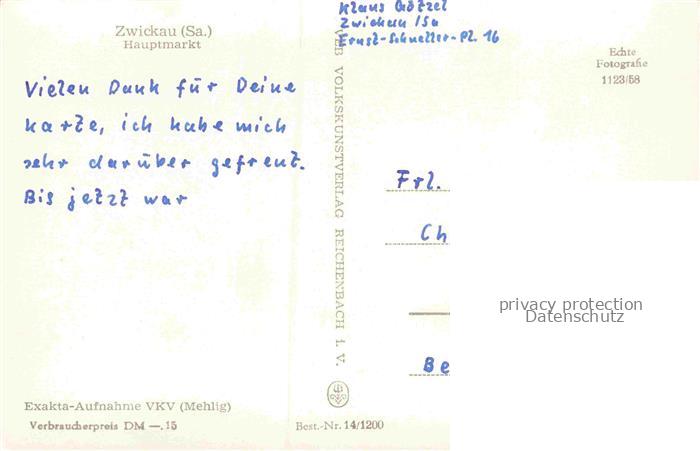 Zwickau (Sa.)
Hauptmarkt
Vielen Dank für Deine
Karte, ich habe mich
sehr darüber gefreut.
Bis jetzt war
Exakta-Aufnahme VKV (Mehlig)
Verbraucherpreis DM —.15
VEB VOLKSKUNSTVERLAG REICHENBACH i. V.
Best.-Nr. 14/1200
Klaus Götzel
Zwickau /Sa
Ernst-Schneller-Pl. 16
Echte
Fotografie
1123/58
Frl.
Ch
Be
privacy protection
Datenschutz